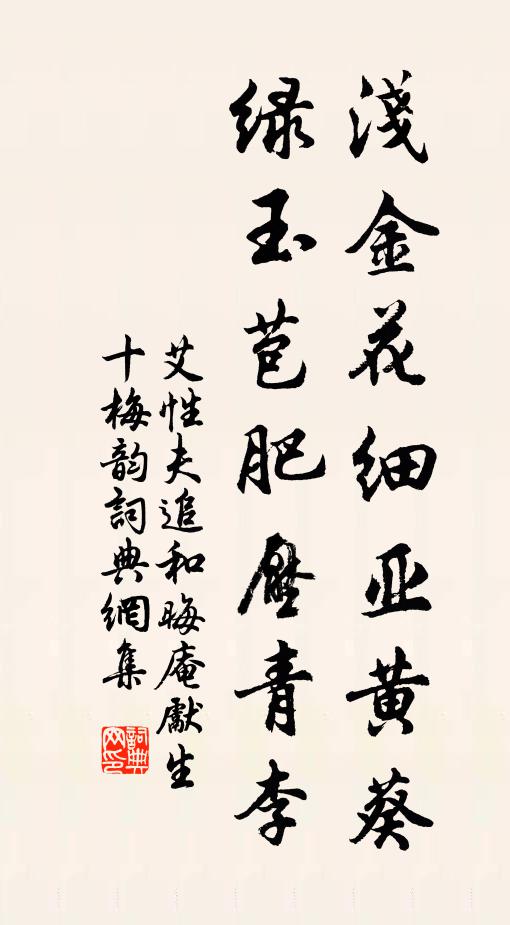 淺金花细亚黄葵
绿玉苞肥壓青李
艾性夫追和晦庵獻生
十梅韵詞典網集
詞典网印